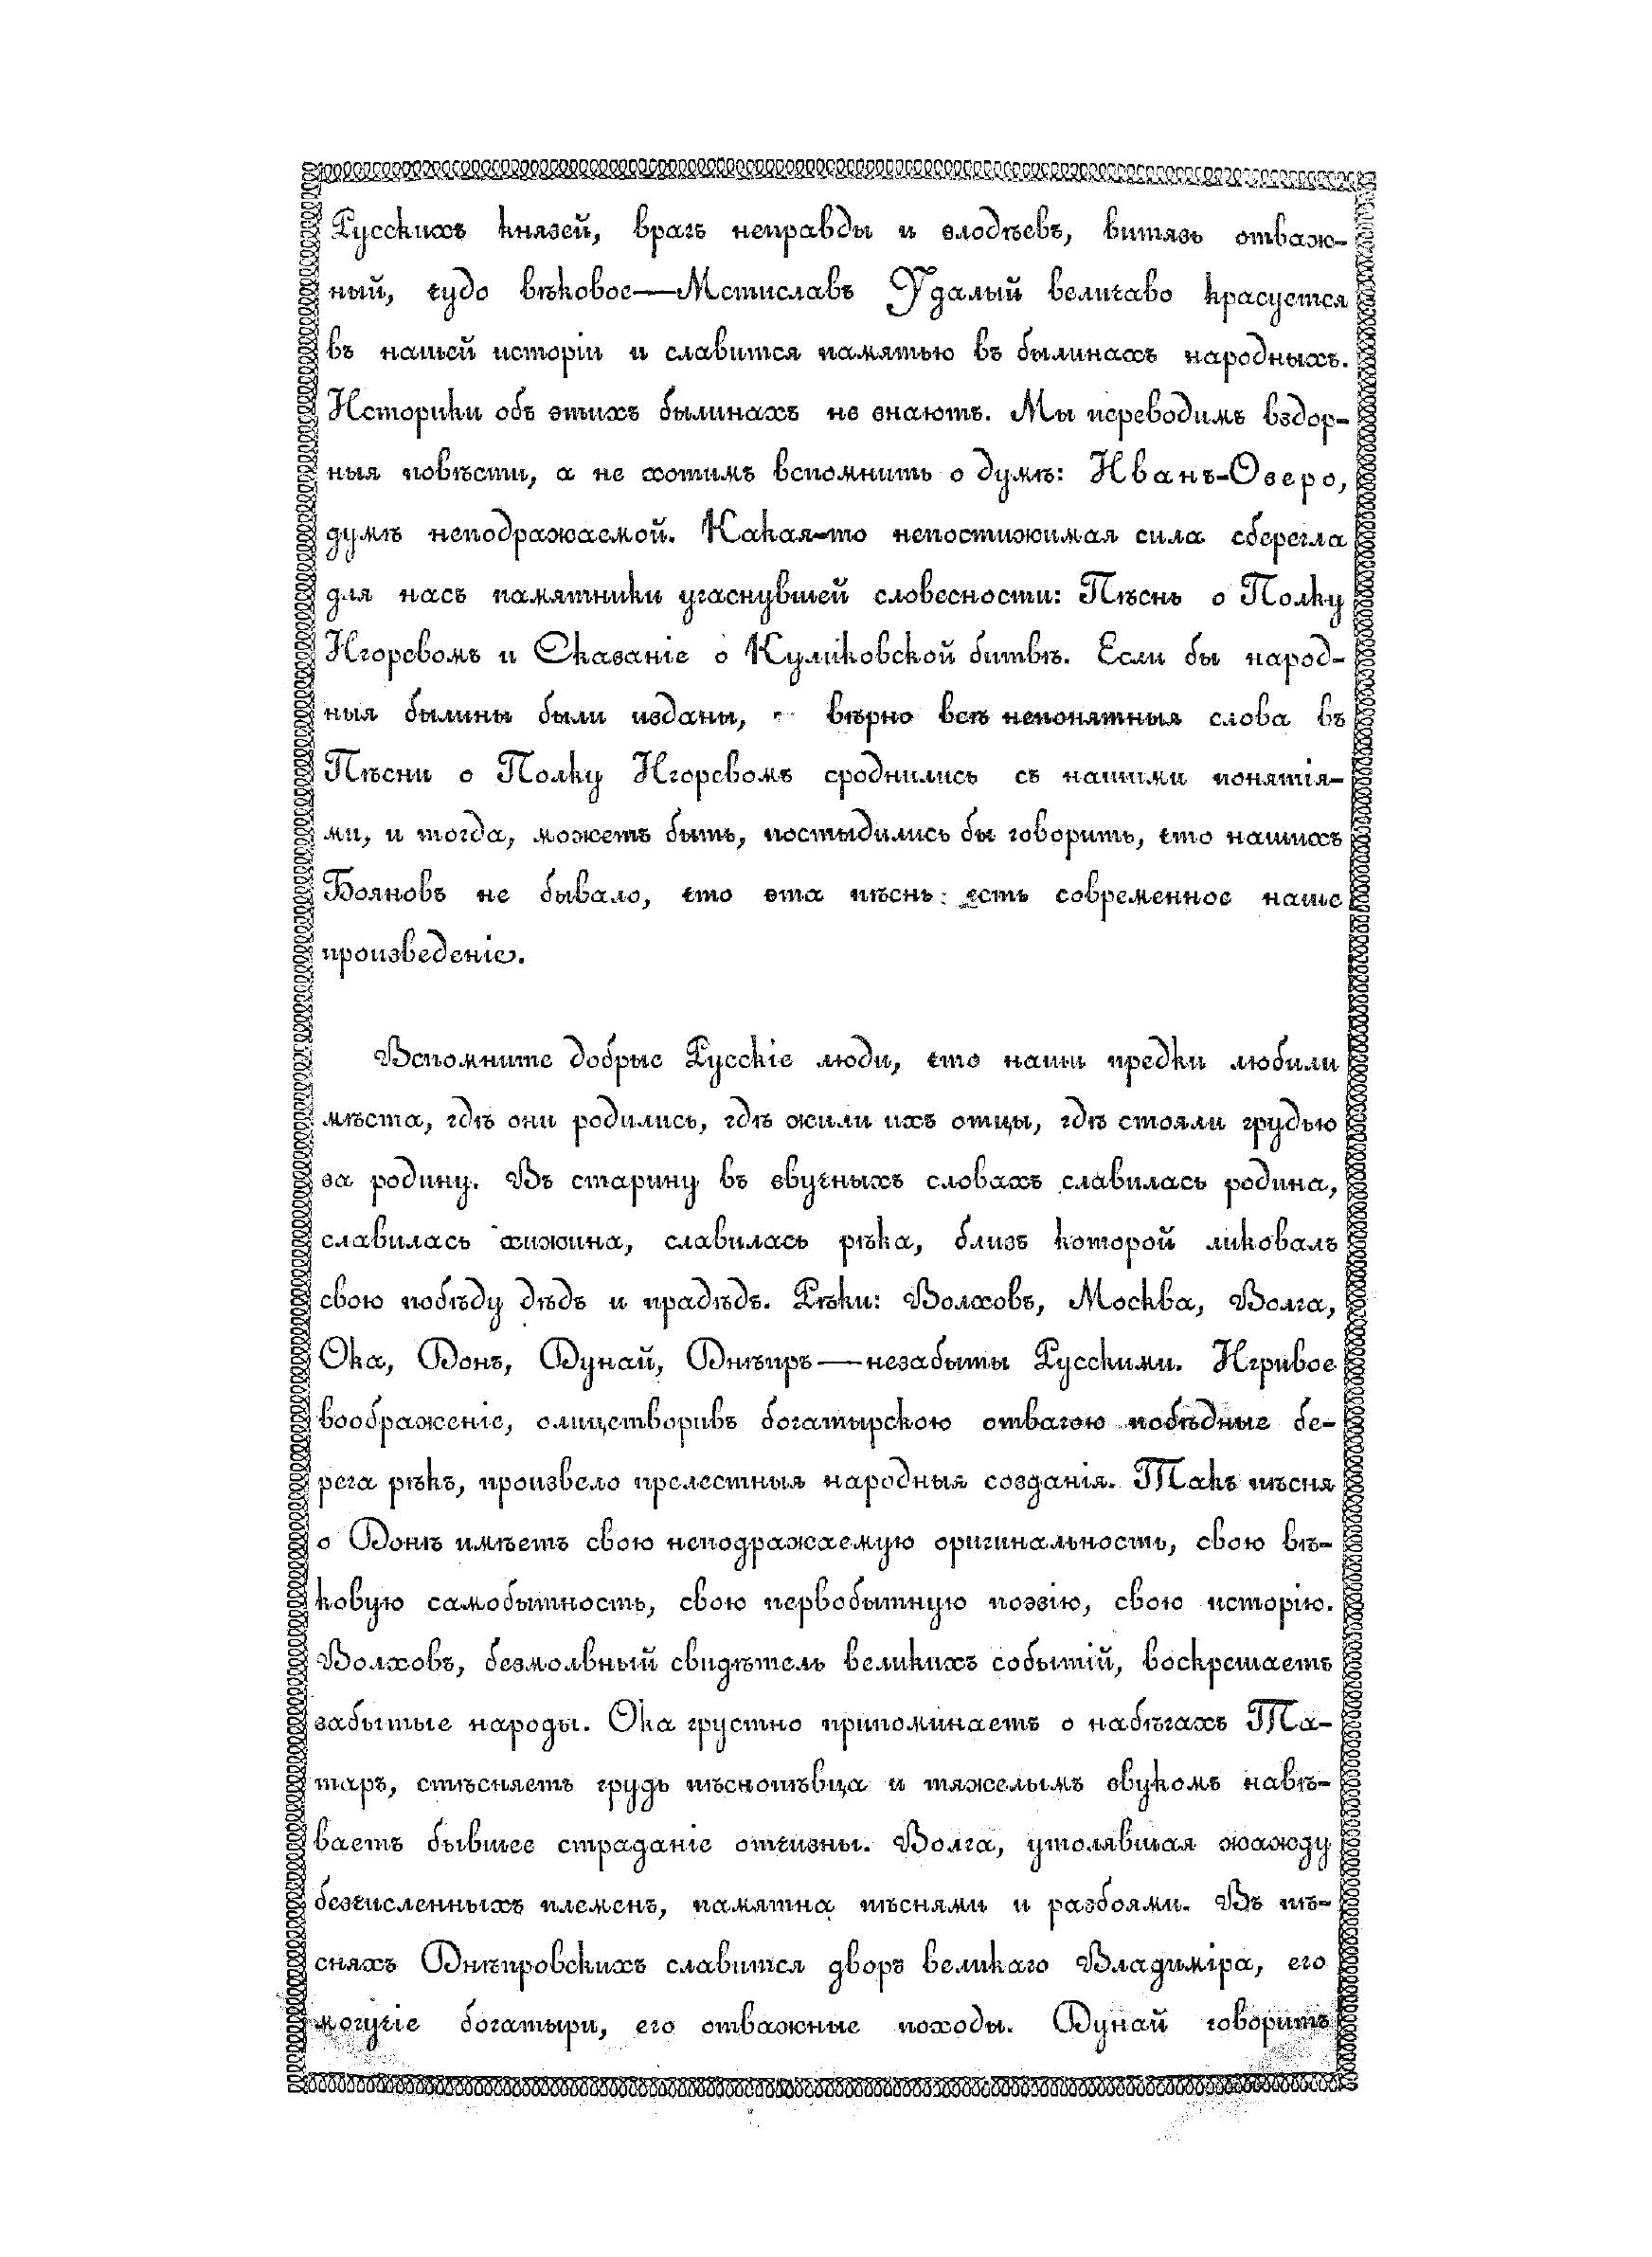 Русскихъ князей, врагъ неправды и злодѣевъ, витязь отваж-
ный, чудо вѣковое—Мстиславъ Удалый величаво красуется
въ нашей исторіи и славится памятью въ былинахъ народныхъ.
Историки объ этихъ былинахъ не знаютъ. Мы переводимъ вздор-
ныя повѣсти, а не хотимъ вспомнить о думѣ: Иванъ-Озеро,
думѣ неподражаемой. Какая-то непостижимая сила сберегла
для насъ памятники угаснувшей словесности: Пѣснь о Полку
Игоревомъ и Сказаніе о Куликовской битвѣ. Если бы народ-
ныя былины были изданы, вѣрно всѣ непонятныя слова въ
Пѣсни о Полку Игоревомъ сроднились съ нашими понятія-
ми, и тогда, можетъ быть, постыдились бы говорить, что нашихъ
Бояновъ не бывало, что эта пѣснь есть современное наше
произведеніе.
Вспомните добрые Русскіе люди, что наши предки любили
мѣста, гдѣ они родились, гдѣ жили ихъ отцы, гдѣ стояли грудью
за родину. Въ старину въ звучныхъ словахъ славилась родина,
славилась хижина, славилась рѣка, близъ которой ликовалъ
свою побѣду дѣдъ и прадѣдъ. Рѣки: Волховъ, Москва, Волга,
Ока, Донъ, Дунай, Днѣпръ—незабыты Русскими. Игривое
воображеніе, олицетворивъ богатырскою отвагою побѣдные бе-
рега рѣкъ, произвело прелестныя народныя созданія. Такъ пѣсня
о Донѣ имѣетъ свою неподражаемую оригинальность, свою вѣ-
ковую самобытность, свою первобытную поэзію, свою исторію.
Волховъ, безмолвный свидѣтель великихъ событій, воскрешаетъ
забытые народы. Ока грустно припоминаетъ о набѣгахъ Та-
таръ, стѣсняетъ грудь пѣснопѣвца и тяжелымъ звукомъ навѣ-
ваетъ бывшее страданіе отчизны. Волга, утолявшая жажду
безчисленныхъ племенъ, памятна пѣснями и разбоями. Въ пѣ-
сняхъ Днѣпровскихъ славится дворъ великаго Владиміра, его
могучіе богатыри, его отважные походы. Дунай говоритъ